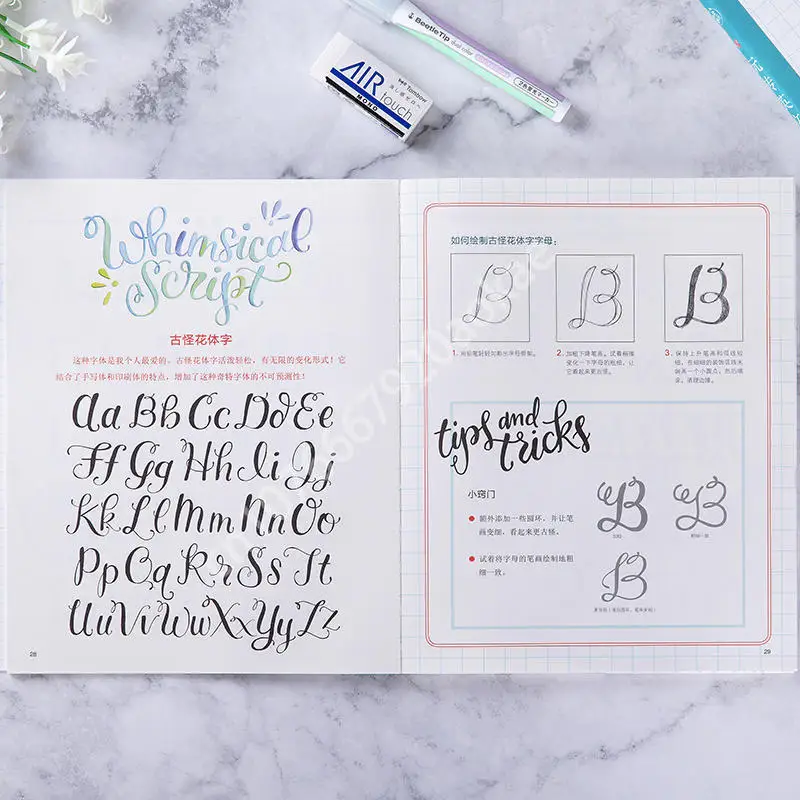 BeetleTip dual color
AIR
touch
MONO
Tombow
Whimsical
Script
古怪花体字
这种字体是我个人最爱的。古怪花体字活泼轻松,有无限的变化形式!它
结合了手写体和印刷体的特点,增加了这种奇特字体的不可预测性!
Aa Bb Cc Dd Ee
Ff Gg Hh Ii Jj
Kk Ll Mm Nn Oo
Pp Qq Rr Ss Tt
Uu Vv Ww Xx Yy Zz
28
如何绘制古怪花体字字母:
B B B
1. 用铅笔轻轻勾勒出字母骨架。
2. 加粗下降笔画。试着稍微
变化一下字母的粗细,让
它看起来更古怪。
3. 保持上升笔画和弧线较
细,在细细的装饰弧线末
端画一个小圆点,然后描
染,清理边缘。
tips and
tricks
小窍门
额外添加一些圆环,并让笔
画变细,看起来更古怪。
试着将字母的笔画绘制地粗
细一致。
B B
B
29